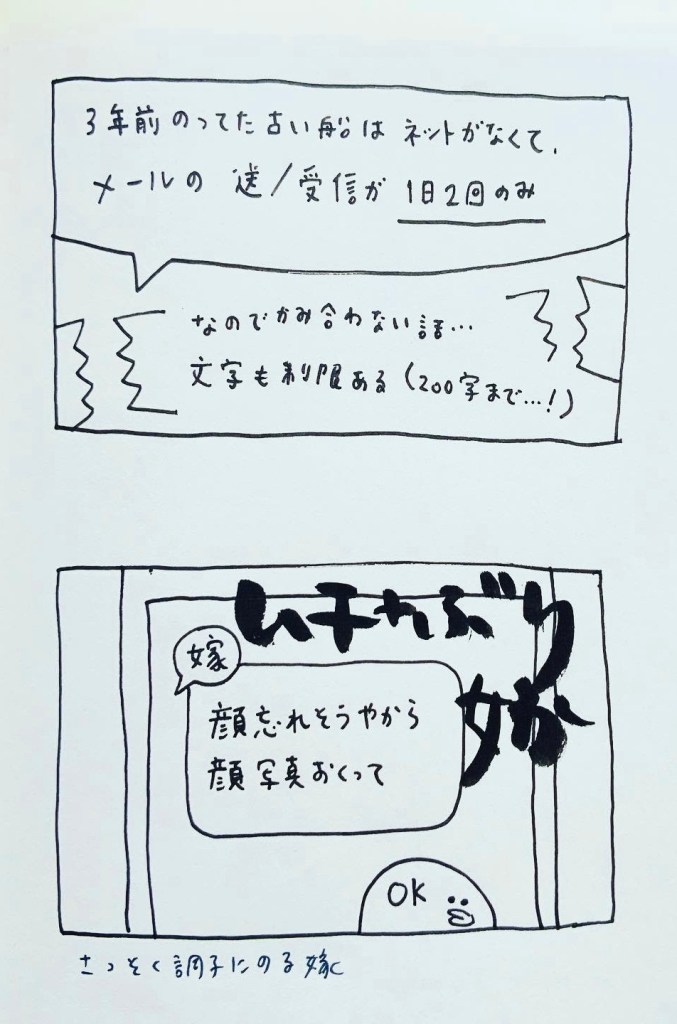 3年前のってた古い船はネットがなくて、
メールの 送/受信が 1日2回のみ
なのでかみ合わない話…
文字も制限ある(200字まで…!)
ムチャぶり
嫁
顔忘れそうやから
顔写真おくって
OK
さっそく調子にのる嫁